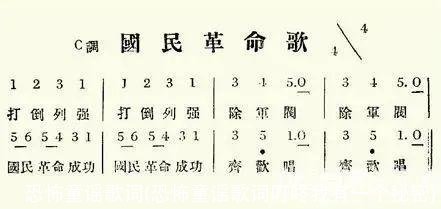 C調 國民革命歌 4/4
1 2 3 1 | 1 2 3 1 | 3 4 5.0 | 3 4 5.0
打倒列强 打倒列强 除軍閥 除軍閥
5 6 5 4 3 1 | 5 6 5 4 3 1 | 3 5 1.0 | 3 5 1.0
國民革命成功 國民革命成功 齊歡唱 齊歌唱
恐怖童谣歌词(恐怖童谣歌词 一个秘密)